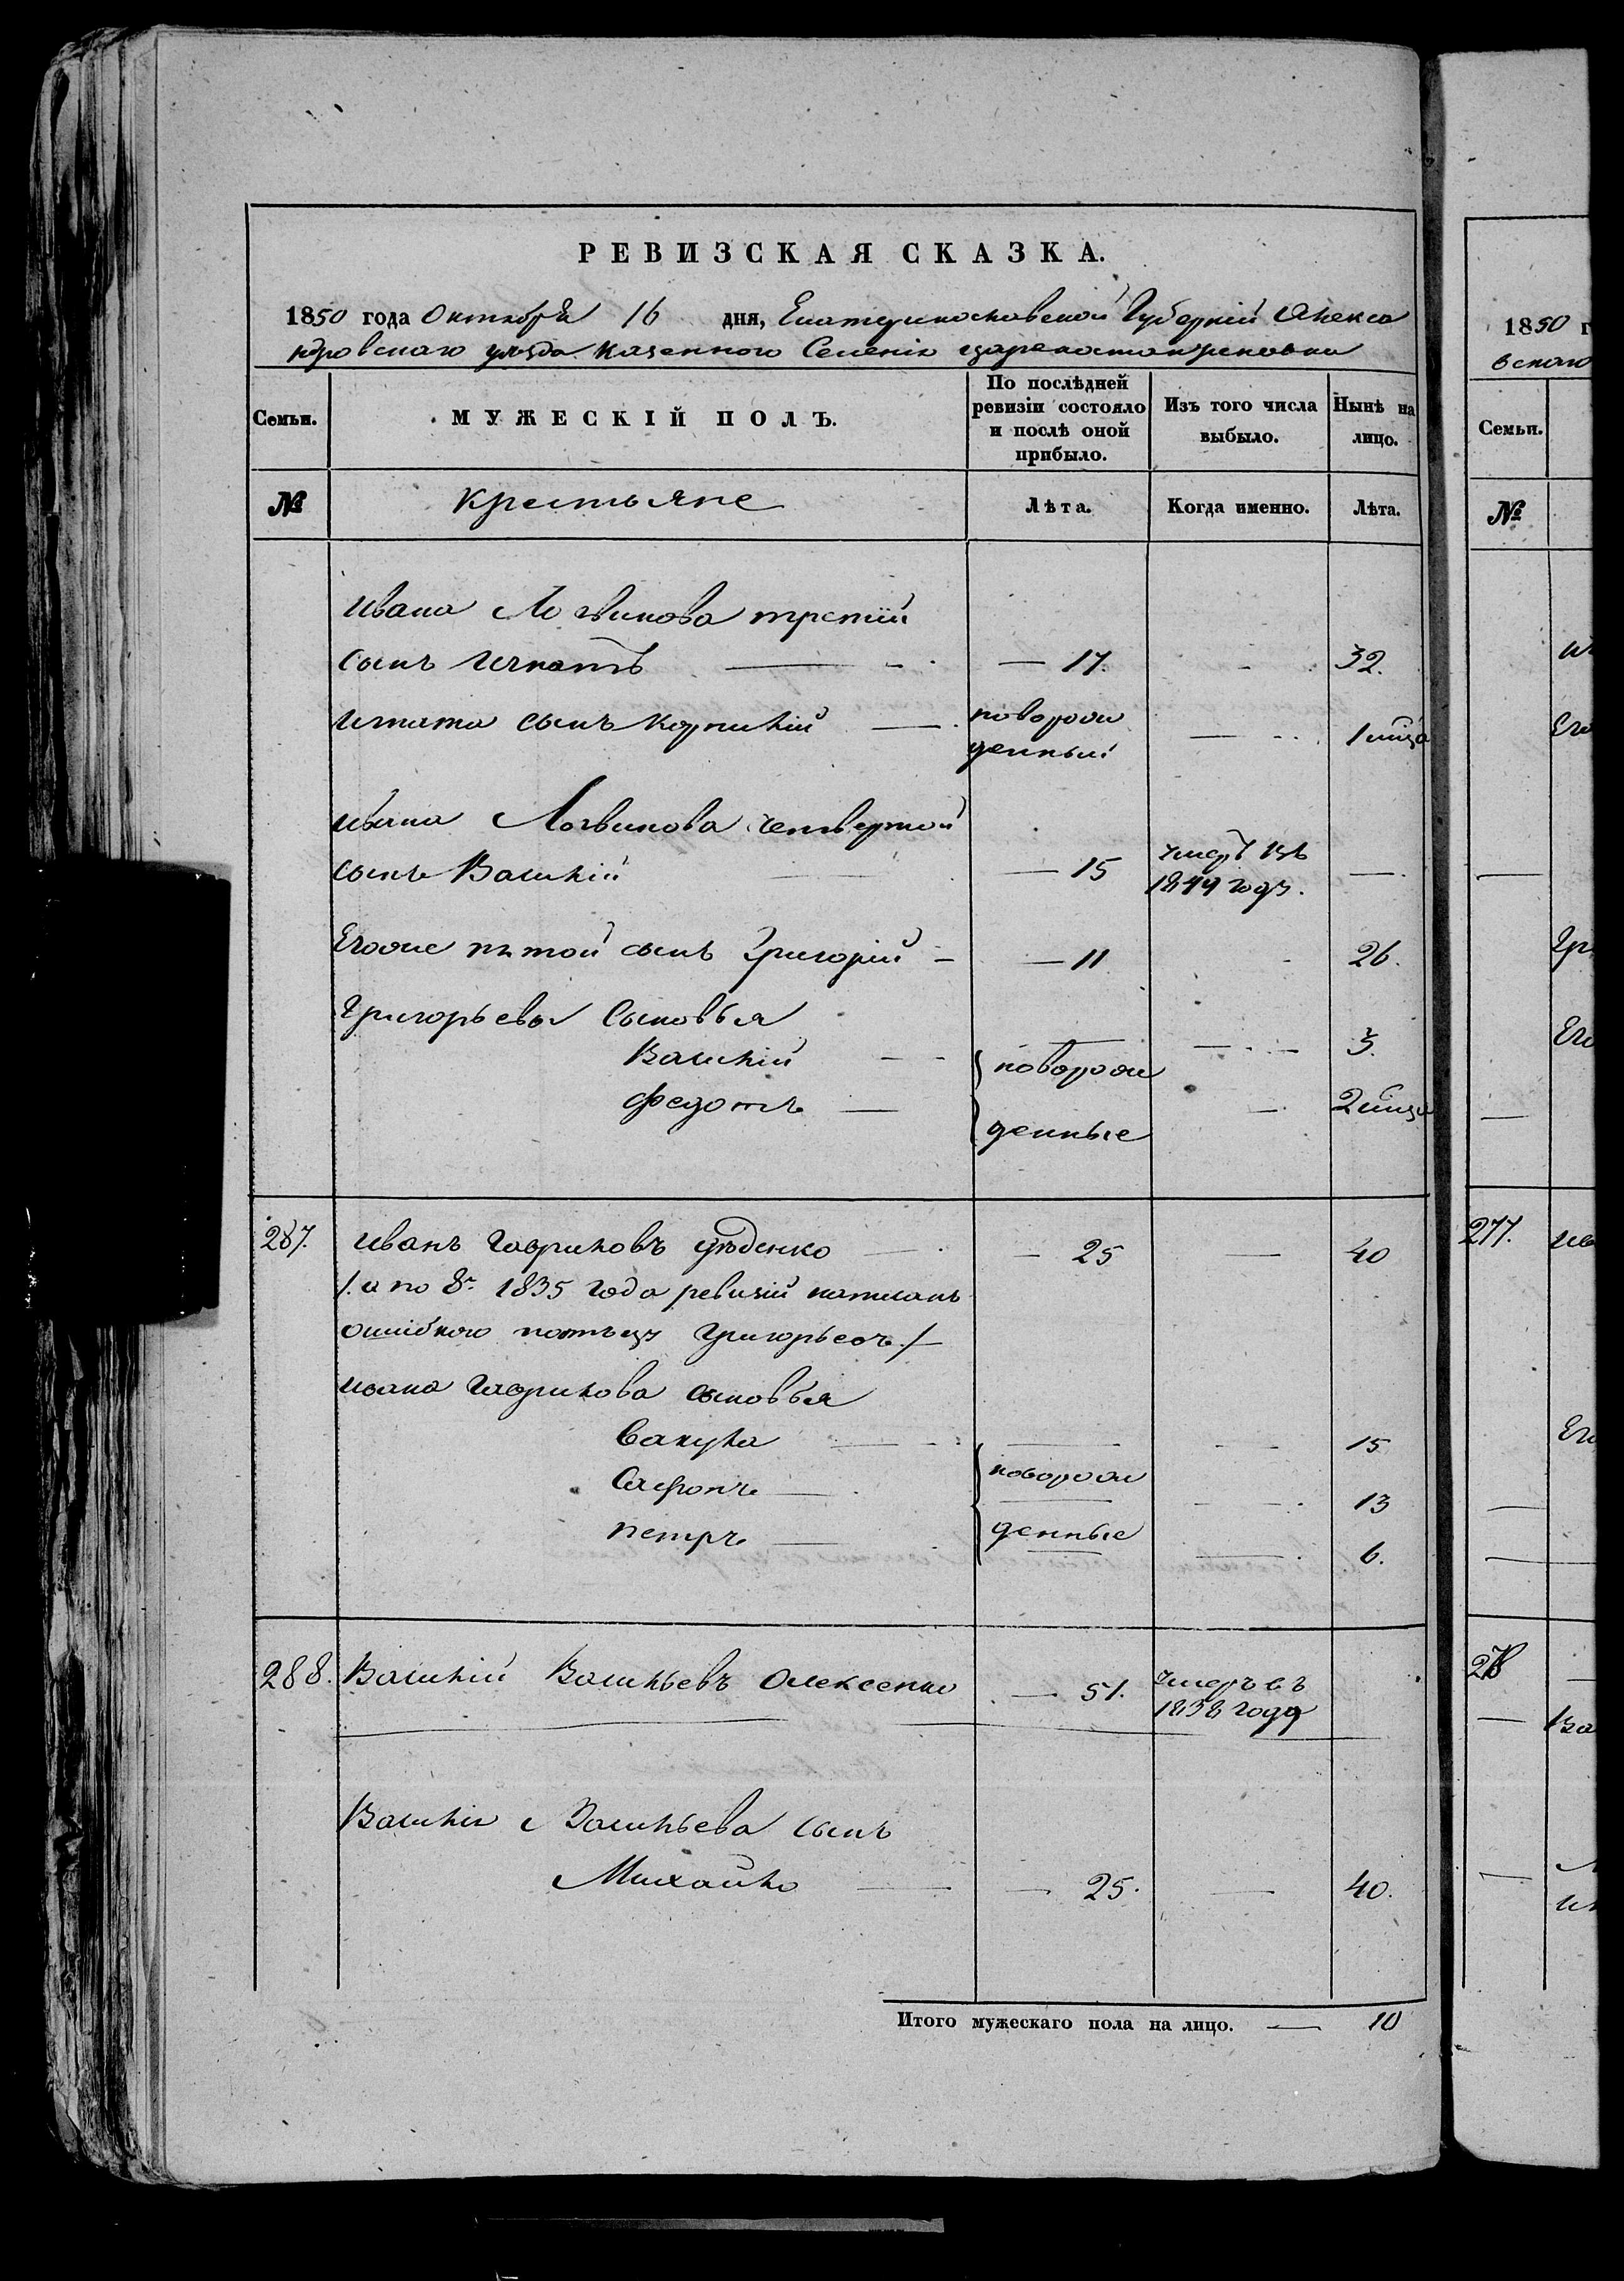 РЕВИЗСКАЯ СКАЗКА.
1850 года Октября 16 дня, Екатеринославской Губерніи Алекса
ндровскаго уезда казенного Селенія Цареконстантиновки
Семьи.
МУЖЕСКІЙ ПОЛЪ.
По послѣдней ревизіи состояло и послѣ оной прибыло.
Изъ того числа выбыло.
Нынѣ на лицо.
№ Крестьяне Лѣта. Когда именно. Лѣта.
Ивана Логвинова третій
сынъ Игнатъ — 17. 32.
Игната сынъ Корнилій — новорож
денный 1 міца
Ивана Логвинова четвертой
сынъ Василій — 15 умеръ въ
1849 году. —
Егоже пятой сынъ Григорій — 11 26.
Григорьевы Сыновья
Василій новорож 3.
Федотъ — денные 2 міца
287. Иванъ Гавриловъ — 25 — 40
/. а по 8й 1835 года ревизіи написанъ
ошибкою поотъцу Григорьевъ ./
Ивана Гаврилова сыновья
Вакула — 15
Сафонъ — новорож — 13
Петръ — денные — 6.
288. Василій Васильевъ Олексенко — 51. умеръ въ
1838 году
Василія Васильева сынъ
Михайло — 25. — 40.
Итого мужескаго пола на лицо. — 10
1850 г
вскаго
Семьи.
№
277.
278